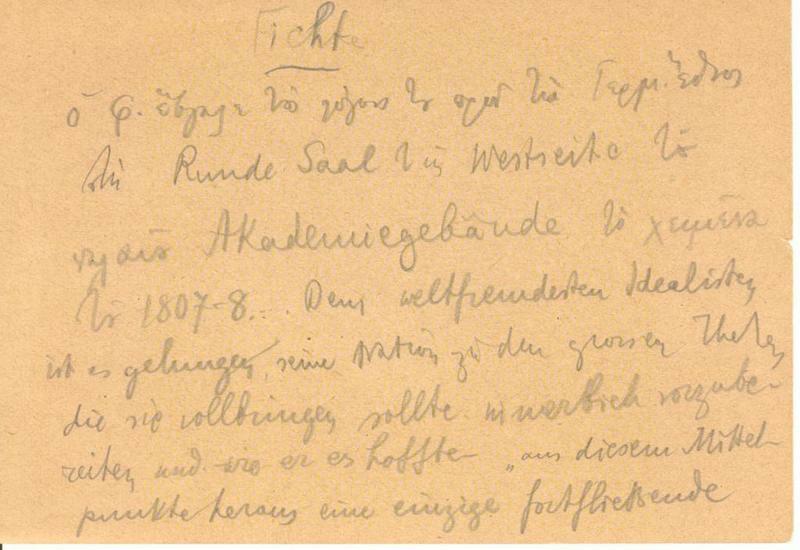 Fichte
ὁ Φ. ἔβγαλε τοὺς λόγους του πρὸς τὸ Γερμ. Ἔθνος
στὴ Runde Saal τῆς Westseite τοῦ
παλαιοῦ Akademiegebäude τὸ χειμῶνα
τοῦ 1807-8. Dem weltfremdesten Idealisten
ist es gelungen, seine Nation zu den grossen Thaten,
die sie vollbringen sollte innerlich vorzube-
reiten und wo er es hoffte „aus diesem Mittel-
punkte heraus eine einzige fortfließende